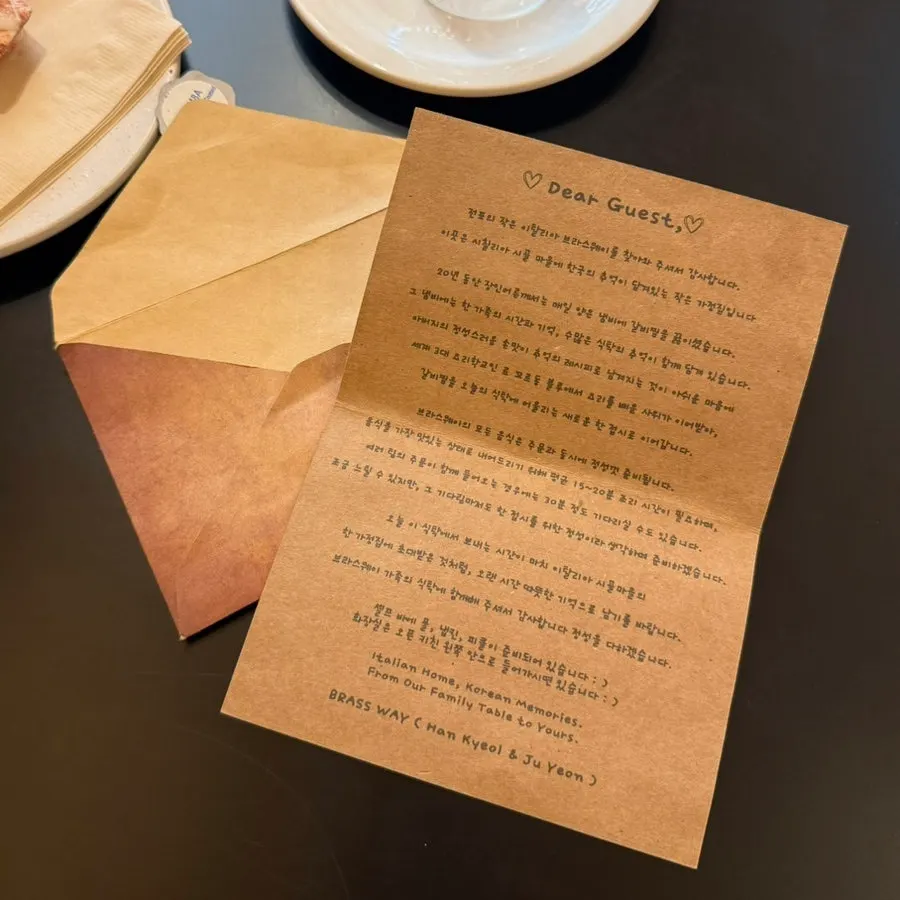 ♡ Dear Guest,♡
전포의 작은 이탈리아 브라스웨이를 찾아와 주셔서 감사합니다.
이곳은 시칠리아 시골 마을에 한국의 추억이 담겨있는 작은 가정집입니다
20년 동안 장인어른께서는 매일 양은 냄비에 갈비찜을 끓이셨습니다.
그 냄비에는 한 가족의 시간과 기억, 수많은 식탁의 추억이 함께 담겨 있습니다.
아버지의 정성스러운 손맛이 추억의 레시피로 남겨지는 것이 아쉬운 마음에
세계 3대 요리학교인 르 꼬르동 블루에서 요리를 배운 사위가 이어받아,
갈비찜을 오늘의 식탁에 어울리는 새로운 한 접시로 이어갑니다.
브라스웨이의 모든 음식은 주문과 동시에 정성껏 준비됩니다.
음식을 가장 맛있는 상태로 내어드리기 위해 평균 15~20분 조리 시간이 필요하며,
여러 팀의 주문이 함께 들어오는 경우에는 30분 정도 기다리실 수도 있습니다.
조금 느릴 수 있지만, 그 기다림마저도 한 접시를 위한 정성이라 생각하며 준비하겠습니다.
오늘 이 식탁에서 보내는 시간이 마치 이탈리아 시골마을의
한 가정집에 초대받은 것처럼, 오랜 시간 따뜻한 기억으로 남기를 바랍니다.
브라스웨이 가족의 식탁에 함께해 주셔서 감사합니다 정성을 다하겠습니다.
셀프 바에 물, 냅킨, 피클이 준비되어 있습니다 : )
화장실은 오픈 키친 왼쪽 안으로 들어가시면 있습니다 : )
Italian Home, Korean Memories.
From Our Family Table to Yours.
BRASS WAY ( Han Kyeol & Ju Yeon )